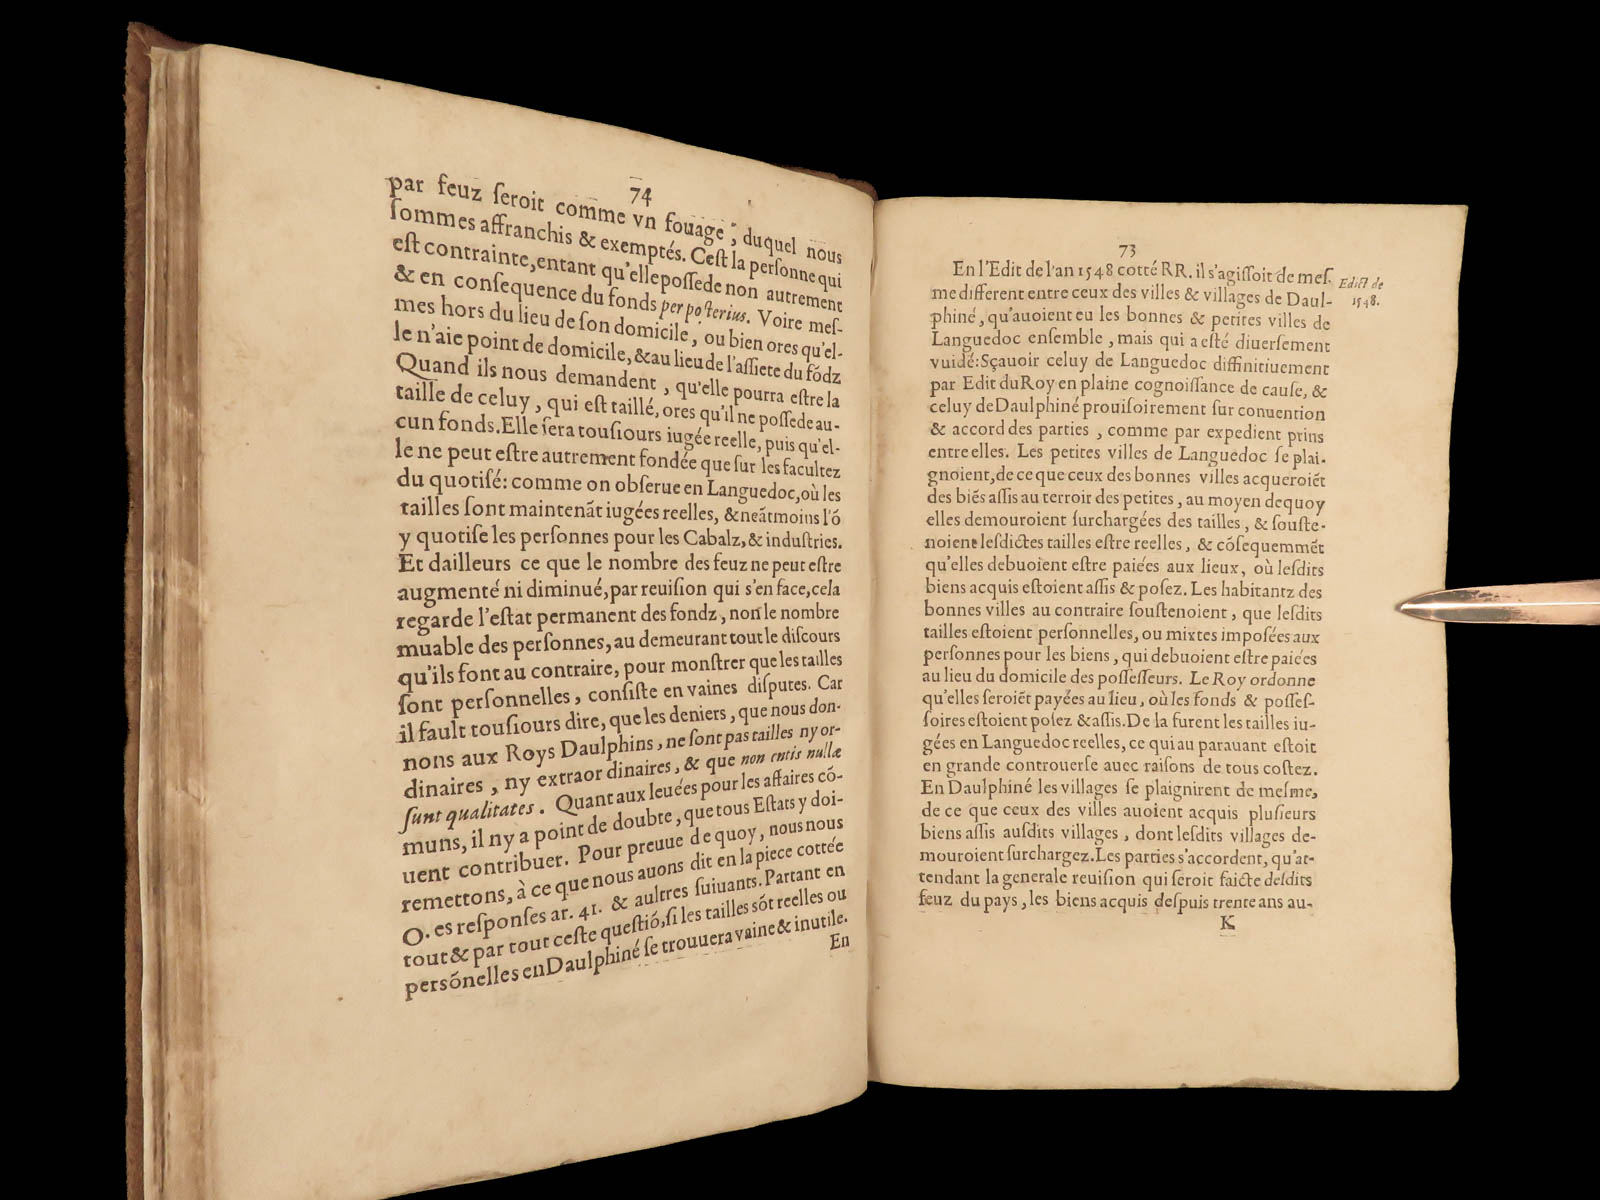 74
par feuz ſeroit comme vn fouage, duquel nous
ſommes affranchis & exemptés. Ceſt la perſonne qui
eſt contrainte, entant qu'elle poſſede non autrement
& en conſequence du fonds per poſterius. Voire meſ-
mes hors du lieu de ſon domicile, ou bien ores qu'el-
le n'aie point de domicile, & au lieu de l'aſſiete du fõdz
Quand ils nous demandent, qu'elle pourra eſtre la
taille de celuy, qui eſt taillé, ores qu'il ne poſſede au-
cun fonds. Elle ſera touſiours iugée reelle, puis qu'el-
le ne peut eſtre autrement fondée que ſur les facultez
du quotiſé: comme on obſerue en Languedoc, où les
tailles ſont maintenãt iugées reelles, & neãtmoins l'õ
y quotiſe les perſonnes pour les Cabalz, & induſtries.
Et dailleurs ce que le nombre des feuz ne peut eſtre
augmenté ni diminué, par reuiſion qui s'en face, cela
regarde l'eſtat permanent des fondz, non le nombre
muable des perſonnes, au demeurant tout le diſcours
qu'ils font au contraire, pour monſtrer que les tailles
ſont perſonnelles, conſiſte en vaines diſputes. Car
il fault touſiours dire, que les deniers, que nous don-
nons aux Roys Daulphins, ne ſont pas tailles ny or-
dinaires, ny extraor dinaires, & que non entis nullæ
ſunt qualitates. Quant aux leuées pour les affaires cõ-
muns, il ny a point de doubte, que tous Eſtats y doi-
uent contribuer. Pour preuue de quoy, nous nous
remettons, à ce que nous auons dit en la piece cottée
O. es reſponſes ar. 41. & aultres ſuiuants. Partant en
tout & par tout ceſte queſtiõ, ſi les tailles sõt reelles ou
persõnelles en Daulphiné ſe trouuera vaine & inutile.
En
73
En l'Edit de l'an 1548 cotté RR. il s'agiſſoit de meſ-
me different entre ceux des villes & villages de Daul-
phiné, qu'auoient eu les bonnes & petites villes de
Languedoc enſemble, mais qui a eſté diuerſement
vuidé: Sçauoir celuy de Languedoc diffinitiuement
par Edit du Roy en plaine cognoiſſance de cauſe, &
celuy de Daulphiné prouiſoirement ſur conuention
& accord des parties, comme par expedient prins
entre elles. Les petites villes de Languedoc ſe plai-
gnoient, de ce que ceux des bonnes villes acqueroiẽt
des biẽs aſſis au terroir des petites, au moyen dequoy
elles demouroient ſurchargées des tailles, & ſouſte-
noient leſdictes tailles eſtre reelles, & cõſequemmẽt
qu'elles debuoient eſtre paiées aux lieux, où leſdits
biens acquis eſtoient aſſis & poſez. Les habitantz des
bonnes villes au contraire ſouſtenoient, que leſdits
tailles eſtoient perſonnelles, ou mixtes impoſées aux
perſonnes pour les biens, qui debuoient eſtre paiées
au lieu du domicile des poſſeſſeurs. Le Roy ordonne
qu'elles ſeroiẽt payées au lieu, où les fonds & poſſeſ-
ſoires eſtoient poſez & aſſis. De la furent les tailles iu-
gées en Languedoc reelles, ce qui au parauant eſtoit
en grande controuerſe auec raiſons de tous coſtez.
En Daulphiné les villages ſe plaignirent de meſme,
de ce que ceux des villes auoient acquis pluſieurs
biens aſſis auſdits villages, dont leſdits villages de-
mouroient ſurchargez. Les parties s'accordent, qu'at-
tendant la generale reuiſion qui ſeroit faicte deſdits
feuz du pays, les biens acquis deſpuis trente ans au-
K
Edict de
1548.